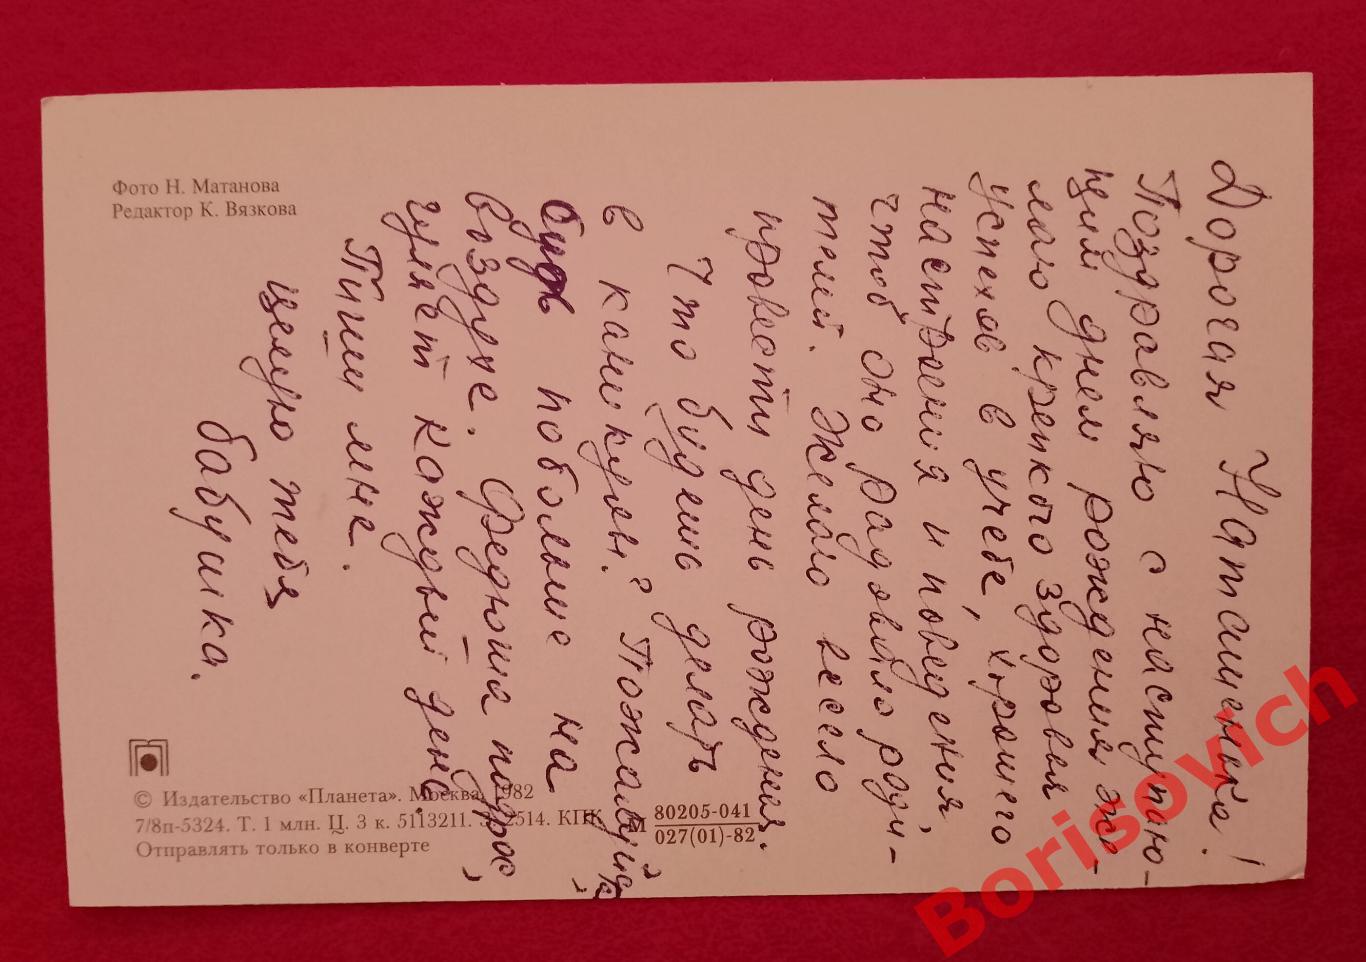 Фото Н. Матанова
Редактор К. Вязкова
Дорогая Наташенька!
Поздравляю с наступаю-
щим днем рождения жe-
лаю крепкого здоровья
успехов в учебе, хорошего
настроения и поведения,
чтоб оно радовало роди-
телей. Желаю весело
провести день рождения.
Что будешь делать
в каникулы? Пожалуйста,
будь побольше на
воздухе. Федюша подрос,
гуляет каждый день.
Пиши мне.
целую тебя
бабушка.
© Издательство «Планета». Москва, 1982
7/8п-5324. Т. 1 млн. Ц. 3 к. 5113211. З. 2514. КПК
М 80205-041
027(01)-82
Отправлять только в конверте
Borisovich